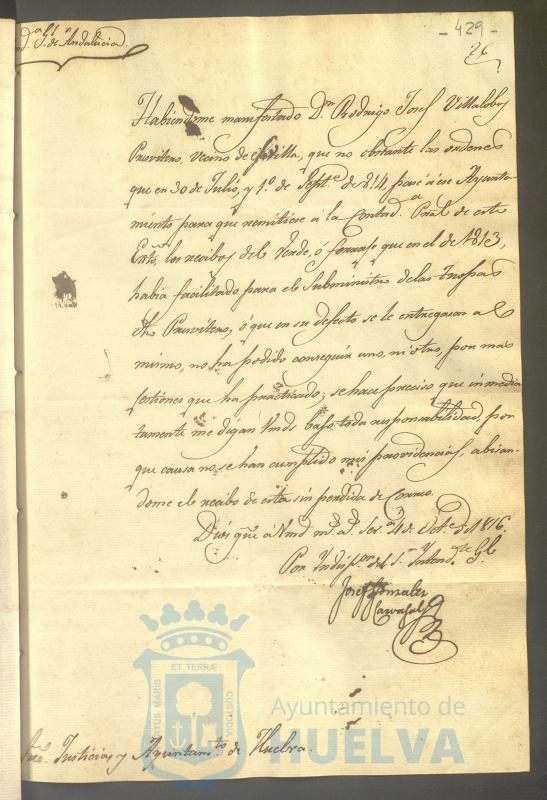 - 429 -
26
D.ª G.l de Andalucia
Habiendome manifestado D.n Rodrigo Josef Villalobos
Presvitero, Vecino de Sevilla, que no obstante las ordenes
que en 30 de Julio, y 1.º de Sept.e de 814, pasé á ese Ayunta-
miento para que remitiese á la Contad.a Pral de este
Exto los recibos del Verde, ó forrase que en el de 1813,
habia facilitado para el Subministro de las tropas
Presvitero, ó que en su defecto se le entregasen al
mismo, no ha podido conseguir uno, ni otro, por mas
gestiones que ha practicado; se hace preciso que inmedia
tamente me digan Vmds bajo toda responsabilidad, por
que causa no se han cumplido mis providencias, abisan-
dome el recibo de esta sin perdida de Correo.
Dios gũe á Vmd m.s a.s Sev.a 4 de Oct.e de 1816.
Por Yndisp.on del S.r Yntend.te G.l
Josef Gonzalez
Carvajal
Justicia y Ayuntam.to de Huelva.
ET TERRÆ
PORTUS MARIS
CUSTODIA
Ayuntamiento de
HUELVA